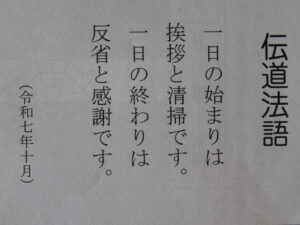 伝道法語
一日の始まりは
挨拶と清掃です。
一日の終わりは
反省と感謝です。
（令和七年十月）